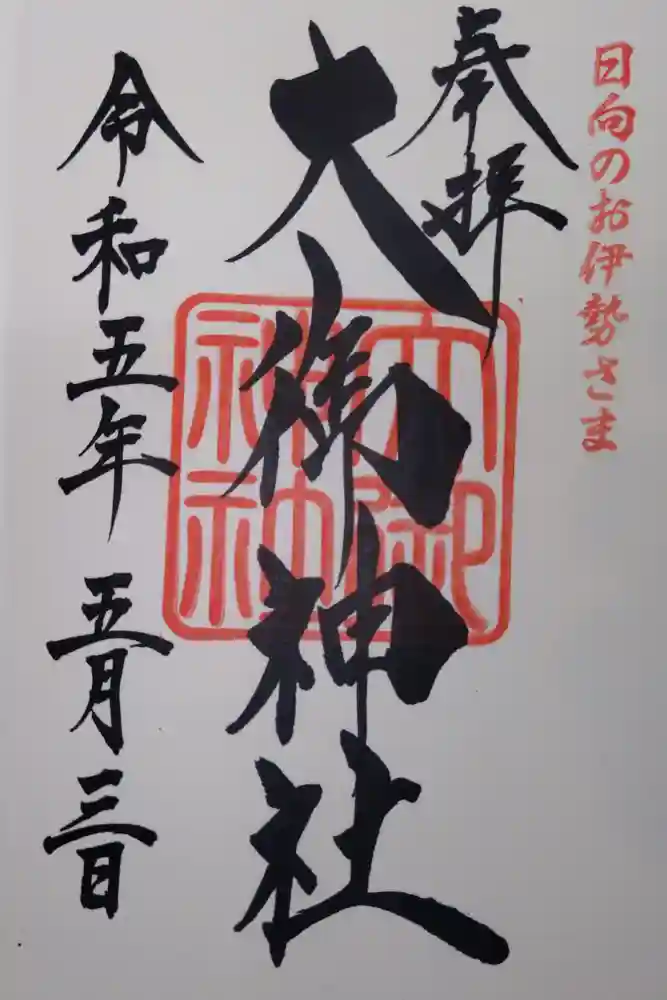 日向のお伊勢さま
奉拝
大御神社
大御神社
令和五年五月三日